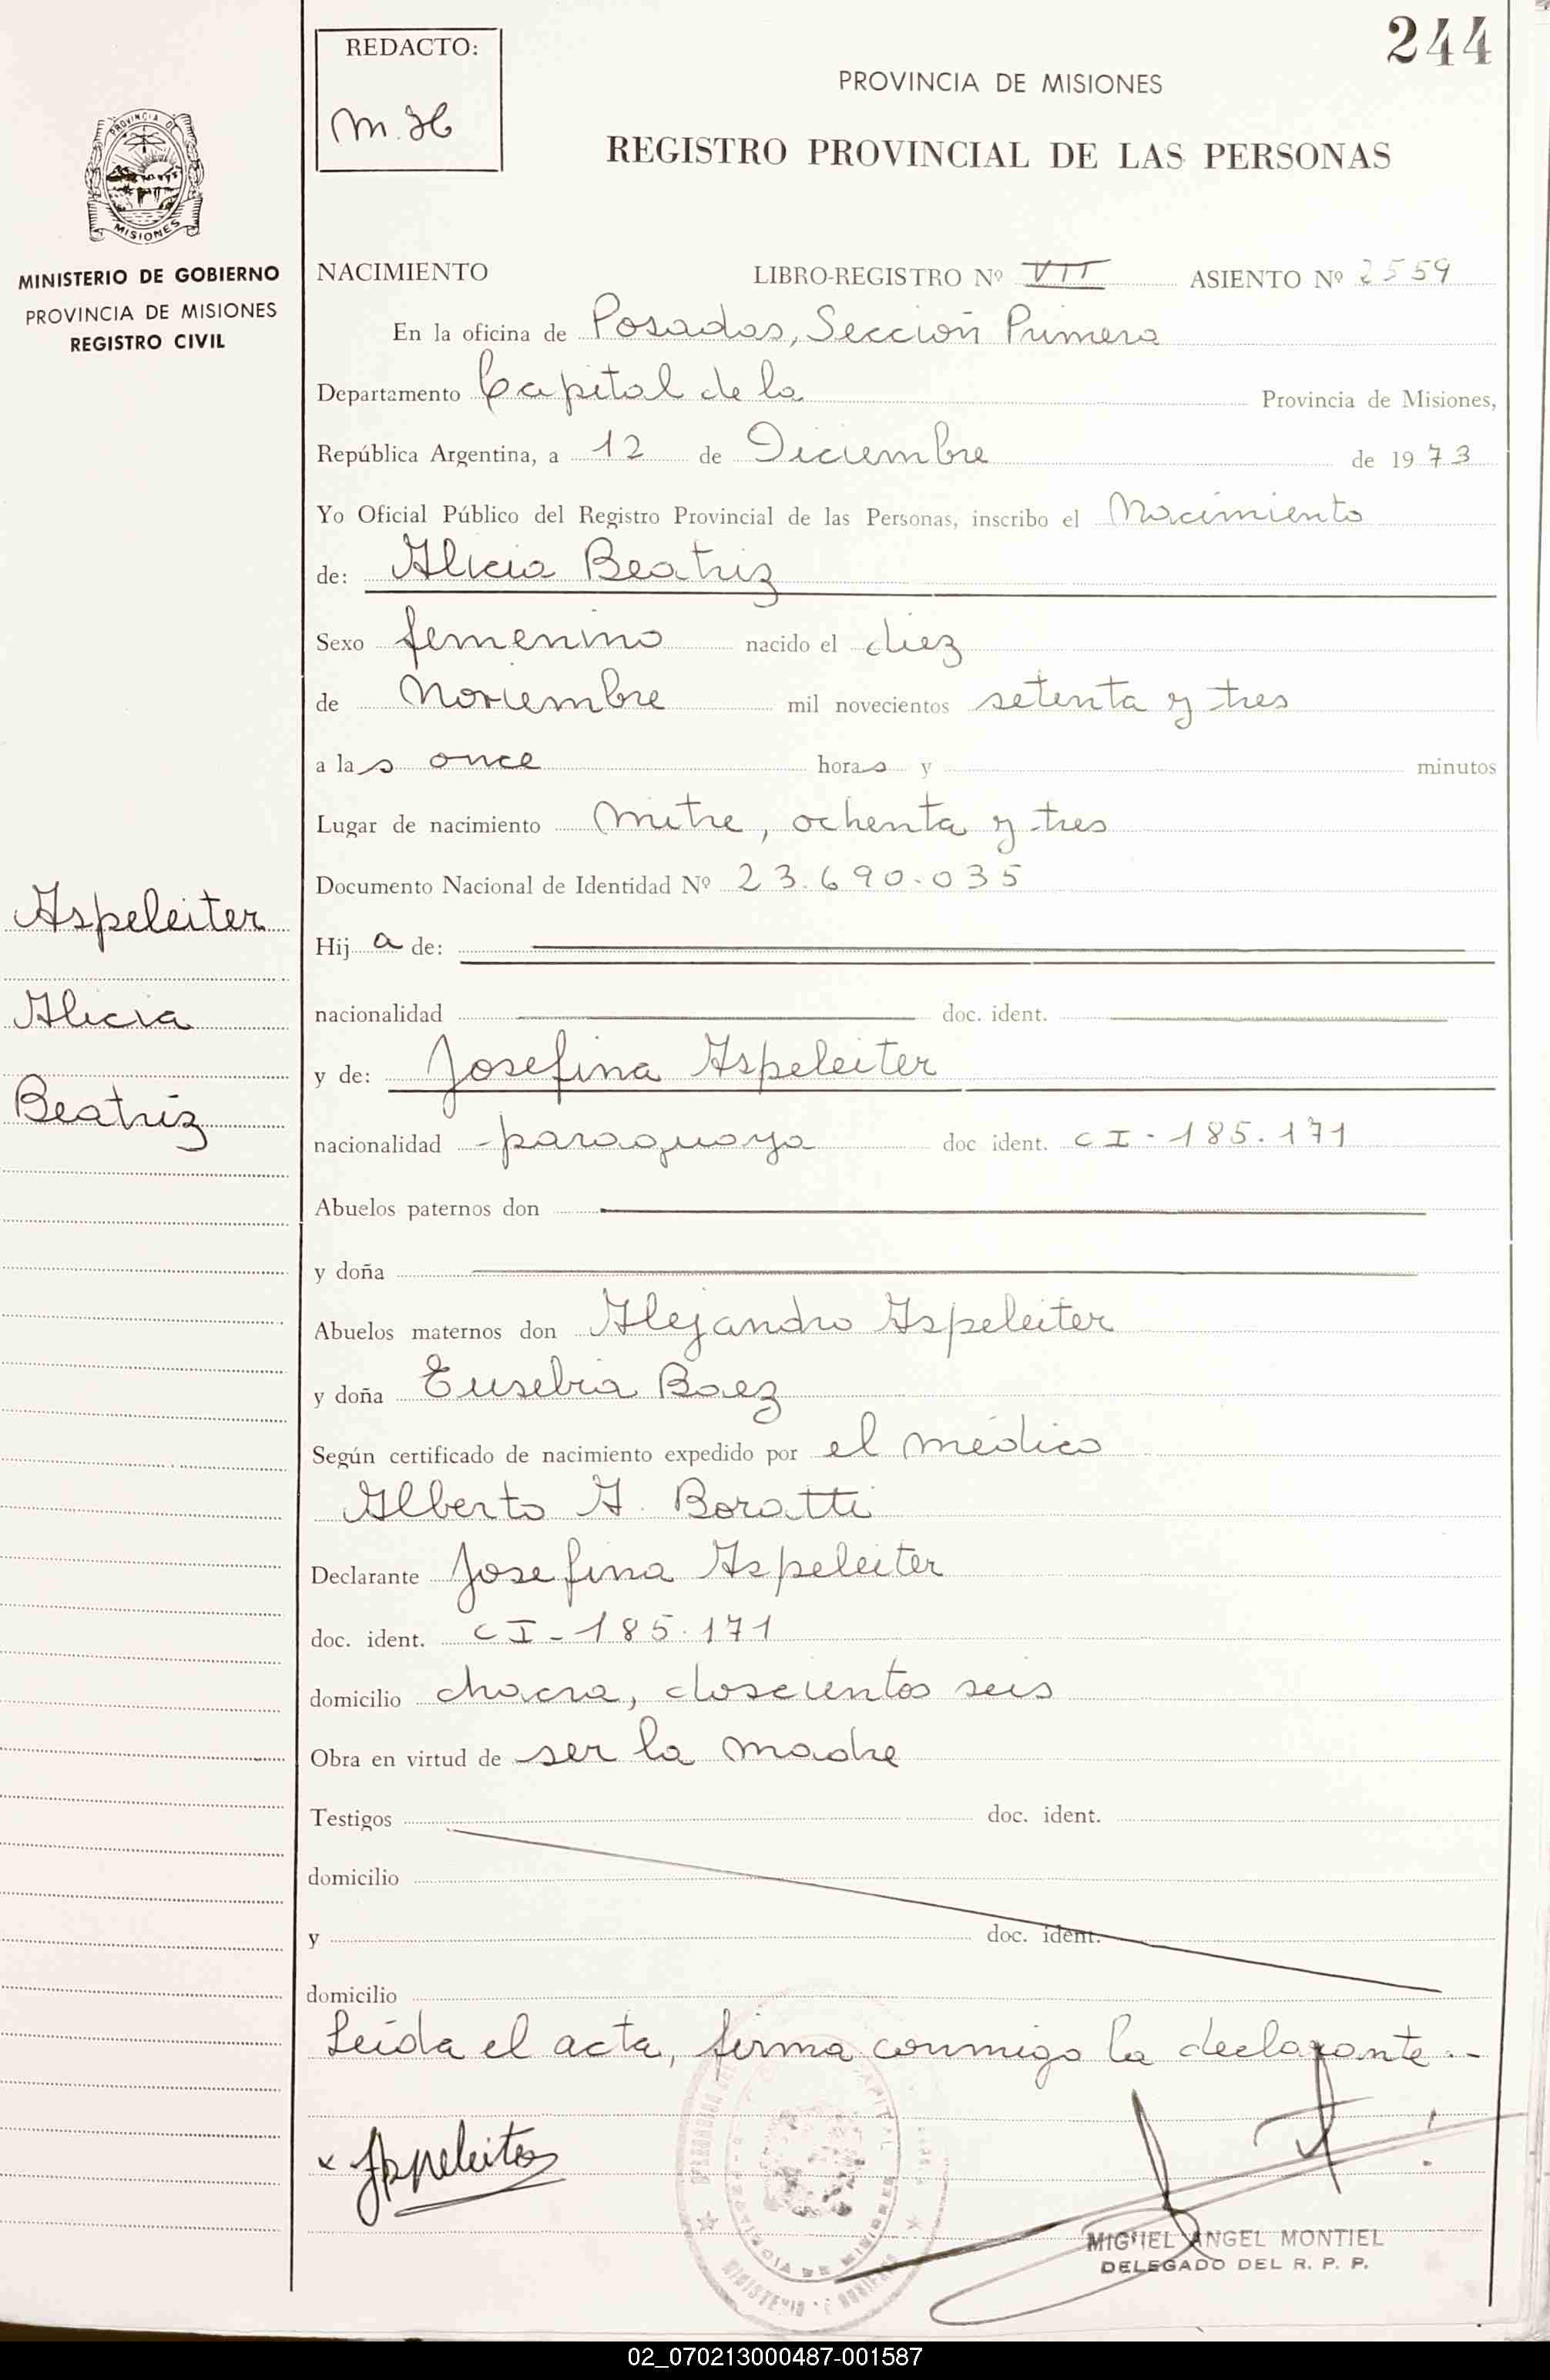 244
REDACTO:
M.H
PROVINCIA DE MISIONES
REGISTRO PROVINCIAL DE LAS PERSONAS
PROVINCIA DE
MISIONES
MINISTERIO DE GOBIERNO
PROVINCIA DE MISIONES
REGISTRO CIVIL
NACIMIENTO LIBRO-REGISTRO Nº VII ASIENTO Nº 2559
En la oficina de Posadas, Sección Primera
Departamento Capital de la Provincia de Misiones,
República Argentina, a 12 de Diciembre de 1973
Yo Oficial Público del Registro Provincial de las Personas, inscribo el Nacimiento
de: Alicia Beatriz
Sexo femenino nacido el diez
de Noviembre mil novecientos setenta y tres
a las once horas y minutos
Lugar de nacimiento Mitre, ochenta y tres
Documento Nacional de Identidad Nº 23.690.035
Aspeleiter
Alicia
Beatriz
Hija de:
nacionalidad doc. ident.
y de: Josefina Aspeleiter
nacionalidad paraguaya doc ident. CI-185.171
Abuelos paternos don
y doña
Abuelos maternos don Alejandro Aspeleiter
y doña Eusebia Baez
Según certificado de nacimiento expedido por el médico
Alberto A. Boratti
Declarante Josefina Aspeleiter
doc. ident. CI-185.171
domicilio chacra, doscientos seis
Obra en virtud de ser la madre
Testigos doc. ident.
domicilio
y doc. ident.
domicilio
Leída el acta, firma conmigo la declarante.-
x Aspeleiter
MIGUEL ANGEL MONTIEL
DELEGADO DEL R. P. P.
02_070213000487-001587